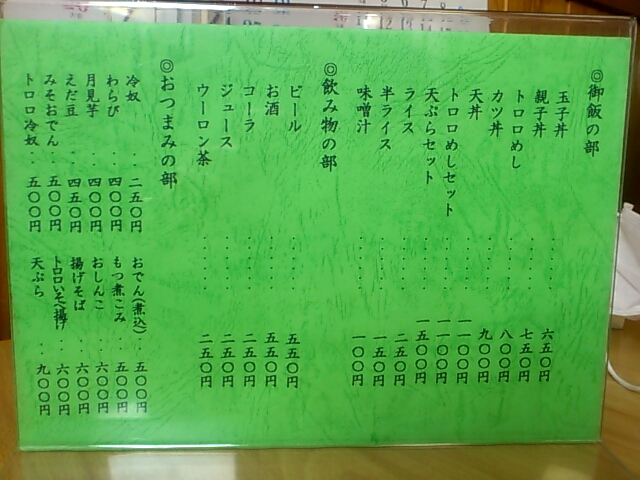 ◎御飯の部
玉子丼・・・・・六五〇円
親子丼・・・・・七五〇円
トロロめし・・・・・八〇〇円
カツ丼・・・・・九〇〇円
天丼・・・・・一一〇〇円
トロロめしセット・・・・一一〇〇円
天ぷらセット・・・・・一五〇〇円
ライス・・・・・二五〇円
半ライス・・・・・一五〇円
味噌汁・・・・・一〇〇円
◎飲み物の部
ビール・・・・・五五〇円
お酒・・・・・五五〇円
コーラ・・・・・二五〇円
ジュース・・・・・二五〇円
ウーロン茶・・・・・二五〇円
◎おつまみの部
冷奴・・二五〇円
わらび・・四〇〇円
月見芋・・四〇〇円
えだ豆・・四五〇円
みそおでん・・五〇〇円
トロロ冷奴・・五〇〇円
おでん(煮込)・・五〇〇円
もつ煮こみ・・五〇〇円
おしんこ・・六〇〇円
揚げそば・・六〇〇円
トロロいそべ揚げ・・六〇〇円
天ぷら・・九〇〇円